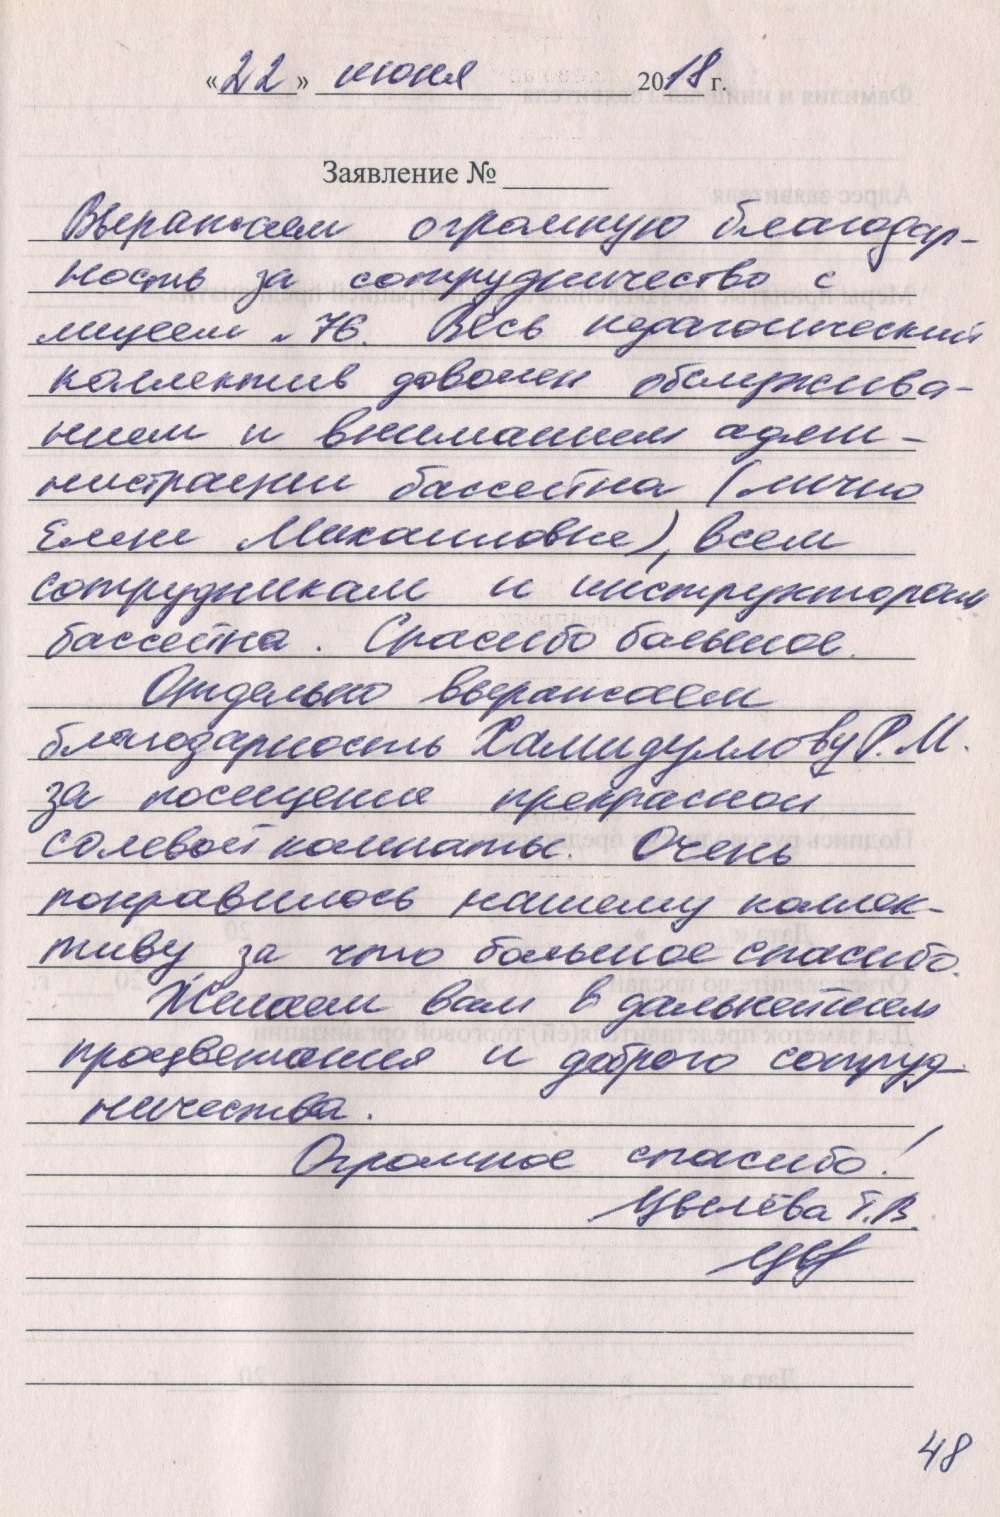 «22» июня 2018 г.
Заявление №
Выражаем огромную благодар-
ность за сотрудничество с
лицеем №76. Весь педагогический
коллектив доволен обслужива-
нием и вниманием адми-
нистрации бассейна (лично
Елене Михаиловне), всем
сотрудникам и инструкторам
бассейна. Спасибо большое.
Отдельно выражаем
благодарность Хамидуллову Р.М.
за посещение прекрасной
солевой комнаты. Очень
понравилось нашему коллек-
тиву за что большое спасибо.
Желаем вам в дальнейшем
процветания и доброго сотруд-
ничества.
Огромное спасибо!
Цвилёва Т.В.
48